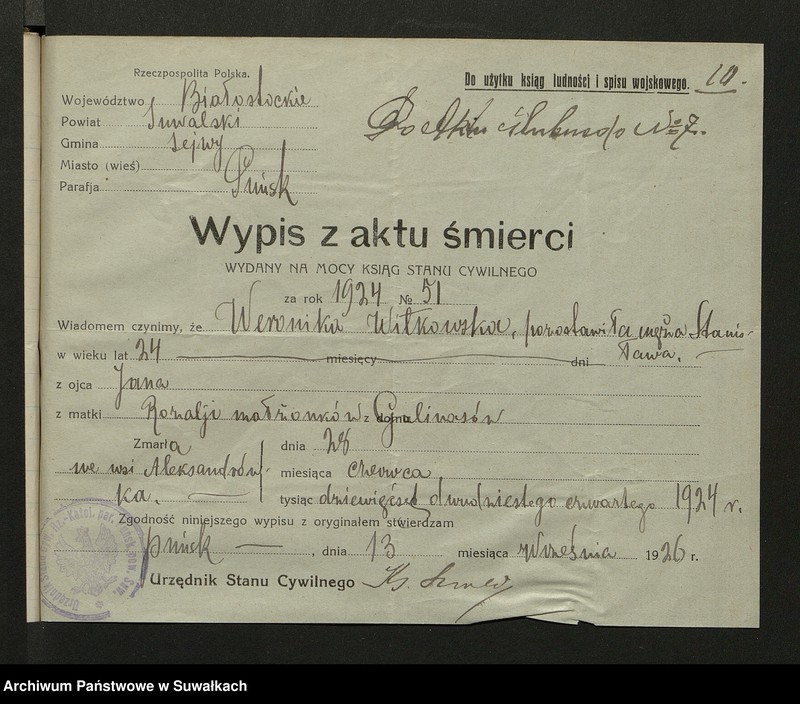 Rzeczpospolita Polska.
Do użytku ksiąg ludności i spisu wojskowego. 10.
Województwo Białostockie
Powiat Suwalski
Gmina Sejwy
Miasto (wieś)
Parafja Puńsk
Do aktu ślubnego No 7.
Wypis z aktu śmierci
WYDANY NA MOCY KSIĄG STANU CYWILNEGO
za rok 1924 № 51
Wiadomem czynimy, że Weronika Witkowska, pozostawiła męża Stanis-
w wieku lat 24 miesięcy dni ława.
z ojca Jana
z matki Rozalji małżonków z domu
Zmarła dnia 28
we wsi Aleksandrów- miesiąca czerwca
ka. tysiąc dziewięćset dwudziestego czwartego 1924 r.
Zgodność niniejszego wypisu z oryginałem stwierdzam
Puńsk, dnia 13 miesiąca Września 1926 r.
Urzędnik Stanu Cywilnego Ks.
Archiwum Państwowe w Suwałkach